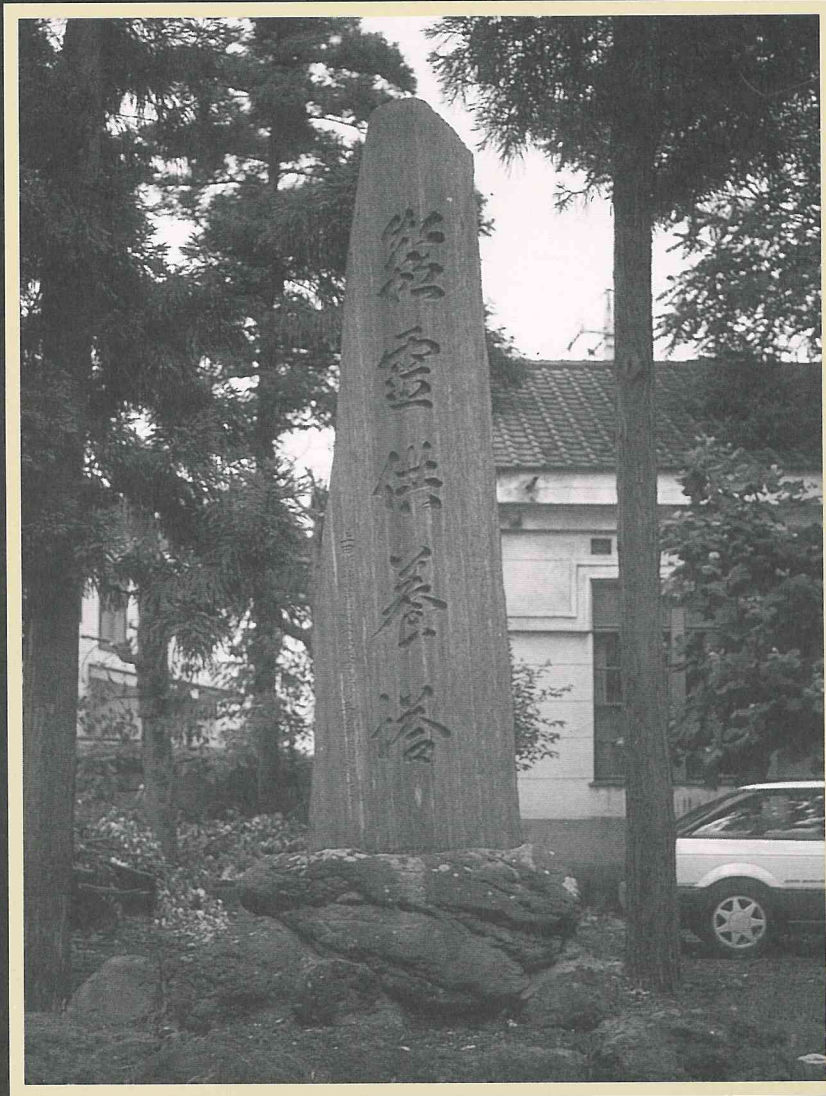 蠶霊供養塔